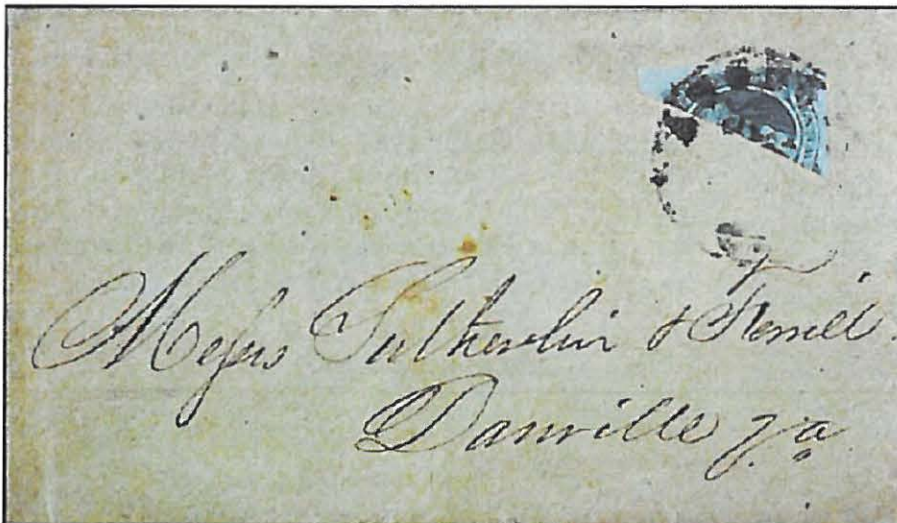 Messrs Sutherlin & Ferrell
Danville Va